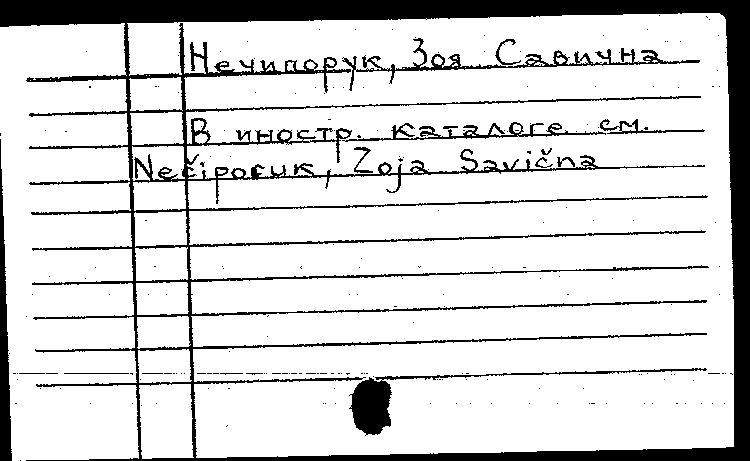 Нечипорук, Зоя Савична
В иностр. каталоге см.
Nečiporuk, Zoja Savična